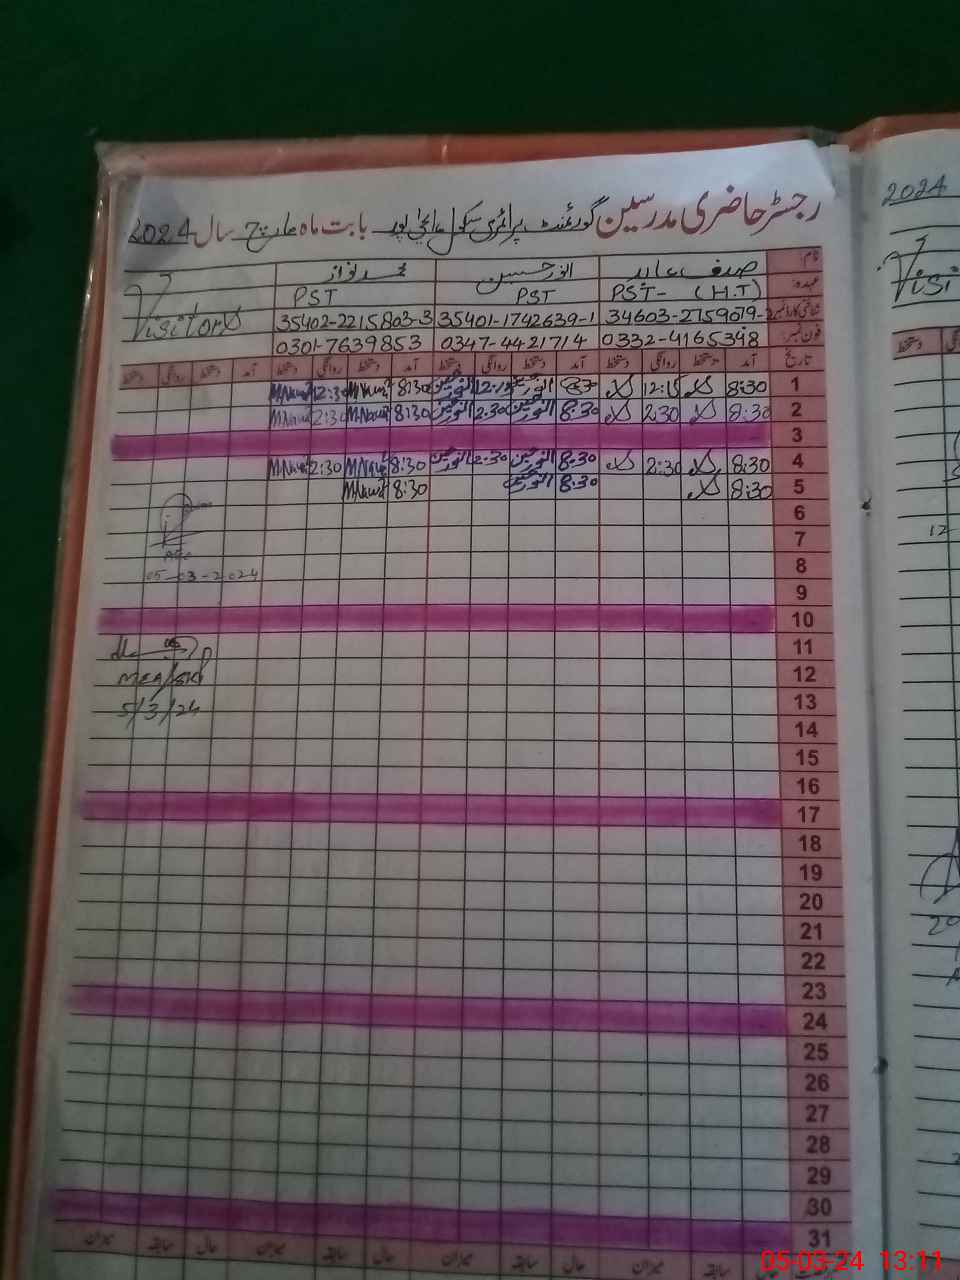 رجسٹر حاضری مدرسین گورنمنٹ پرائمری سکول بابت ماہ مارچ سال 2024
نام: صدف عابد انور حسین محمد نواز
عہدہ: PST- (H.T) PST PST
شناختی کارڈ نمبر 34603-2759079- 35401-1742639-1 35402-2215803-3
فون نمبر: 0332-4165398 0347-4421714 0301-7639853
Visitors
تاریخ آمد دستخط روانگی دستخط آمد دستخط روانگی دستخط آمد دستخط روانگی دستخط آمد دستخط روانگی دستخط
1 8:30 12:15 انور حسین 12:15 انور حسین 8:30 M.Nawaz 12:30 M.Nawaz
2 8:30 2:30 8:30 انور حسین 2:30 انور حسین 8:30 M.Nawaz 2:30 M.Nawaz
3
4 8:30 2:30 8:30 انور حسین 2:30 انور حسین 8:30 M.Nawaz 2:30 M.Nawaz
5 8:30 8:30 انور حسین 8:30 M.Nawaz
6
7
8
05-03-2024
9
10
11
12
MEA/SKP
13
5/3/24
14
15
16
17
18
19
20
21
22
23
24
25
26
27
28
29
30
31
حال سابقہ میزان حال سابقہ میزان حال سابقہ میزان
2024
Visi
دستخط
12
20
05-03-24 13:11